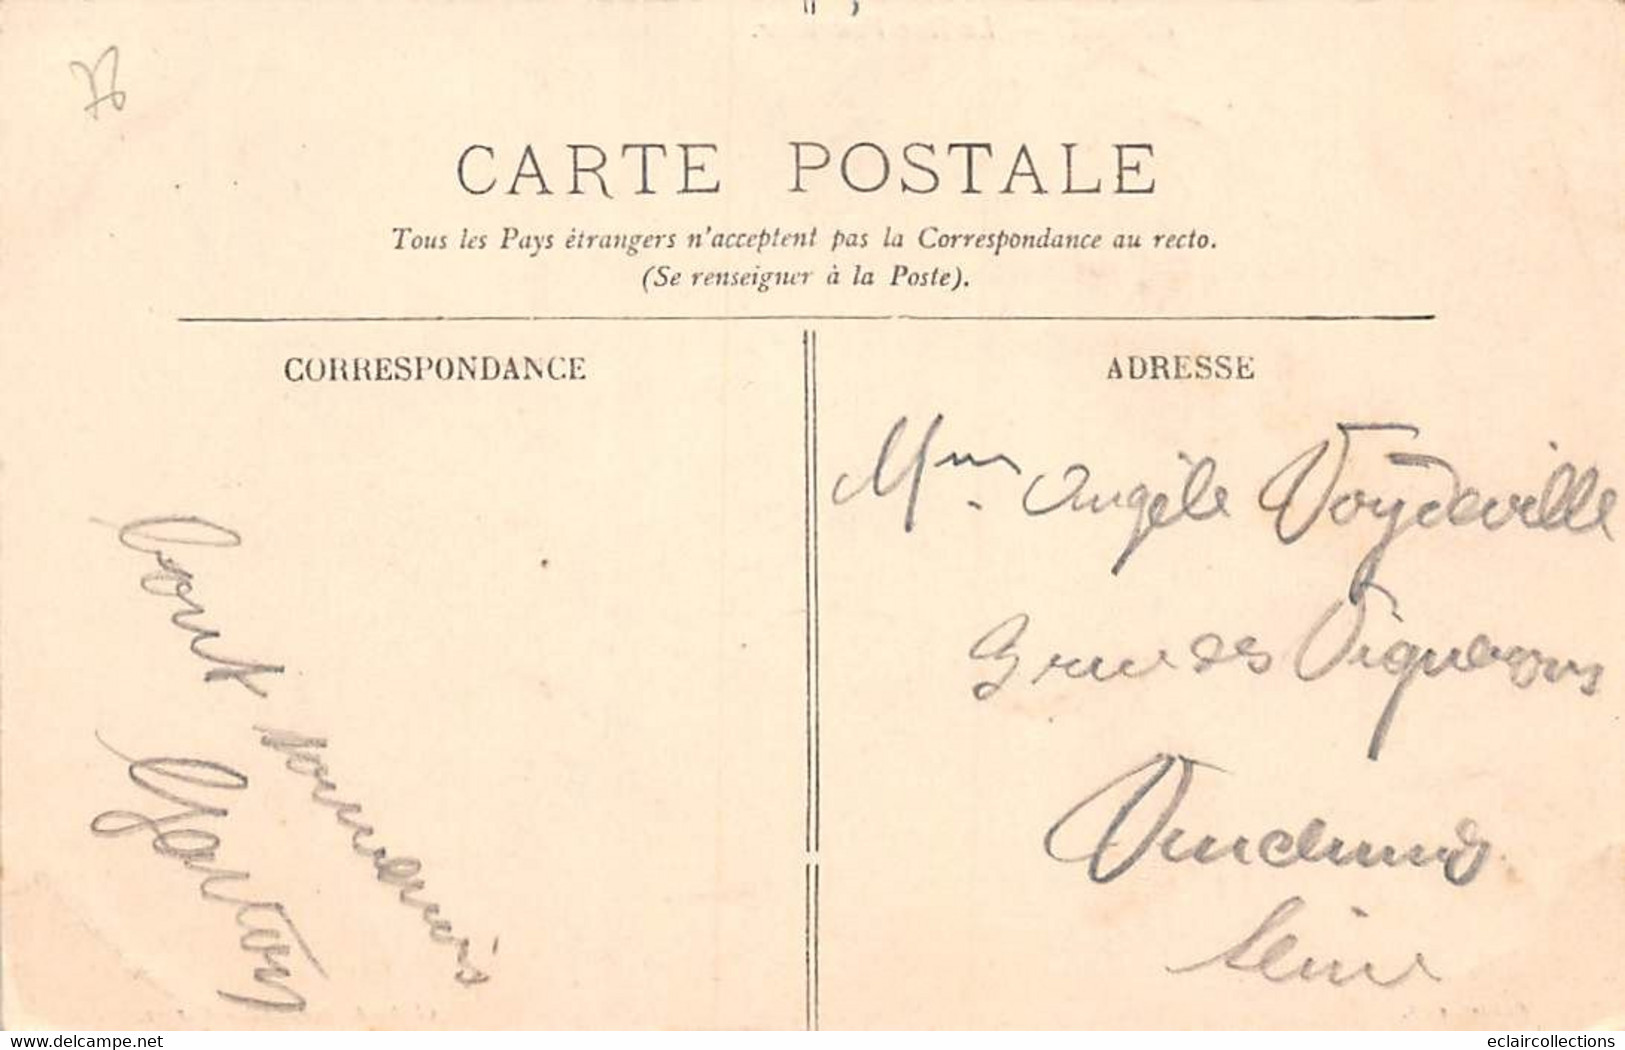 76
CARTE POSTALE
Tous les Pays étrangers n'acceptent pas la Correspondance au recto.
(Se renseigner à la Poste).
CORRESPONDANCE
ADRESSE
Bons souvenirs
Gaston
Mme Angèle Voydeville
3 rue des Vignerons
Vincennes
Seine
www.delcampe.net
eclaircollections